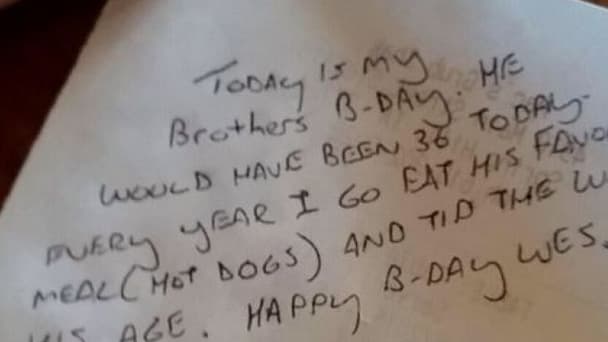 TODAY IS MY
Brothers B-DAY. HE
WOULD HAVE BEEN 36 TODAY.
EVERY YEAR I GO EAT HIS
MEAL (HOT DOGS) AND TIP THE
HIS AGE. HAPPY B-DAY WES.